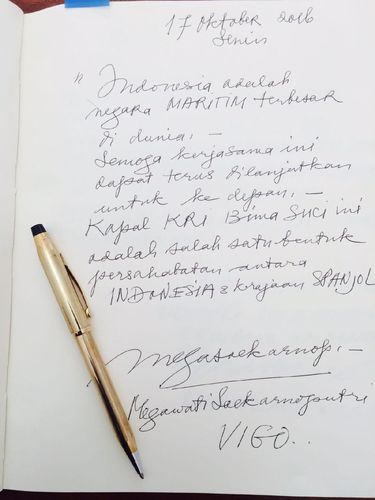 17 Oktober 2016
Senin
Indonesia adalah
negara MARITIM terbesar
di dunia, —
Semoga kerjasama ini
dapat terus dilanjutkan
untuk ke depan. —
Kapal KRI Bima Suci ini
adalah salah satu bentuk
persahabatan antara
INDONESIA & Krajaan SPANJOL
Megawati Soekarnoputri
VIGO..